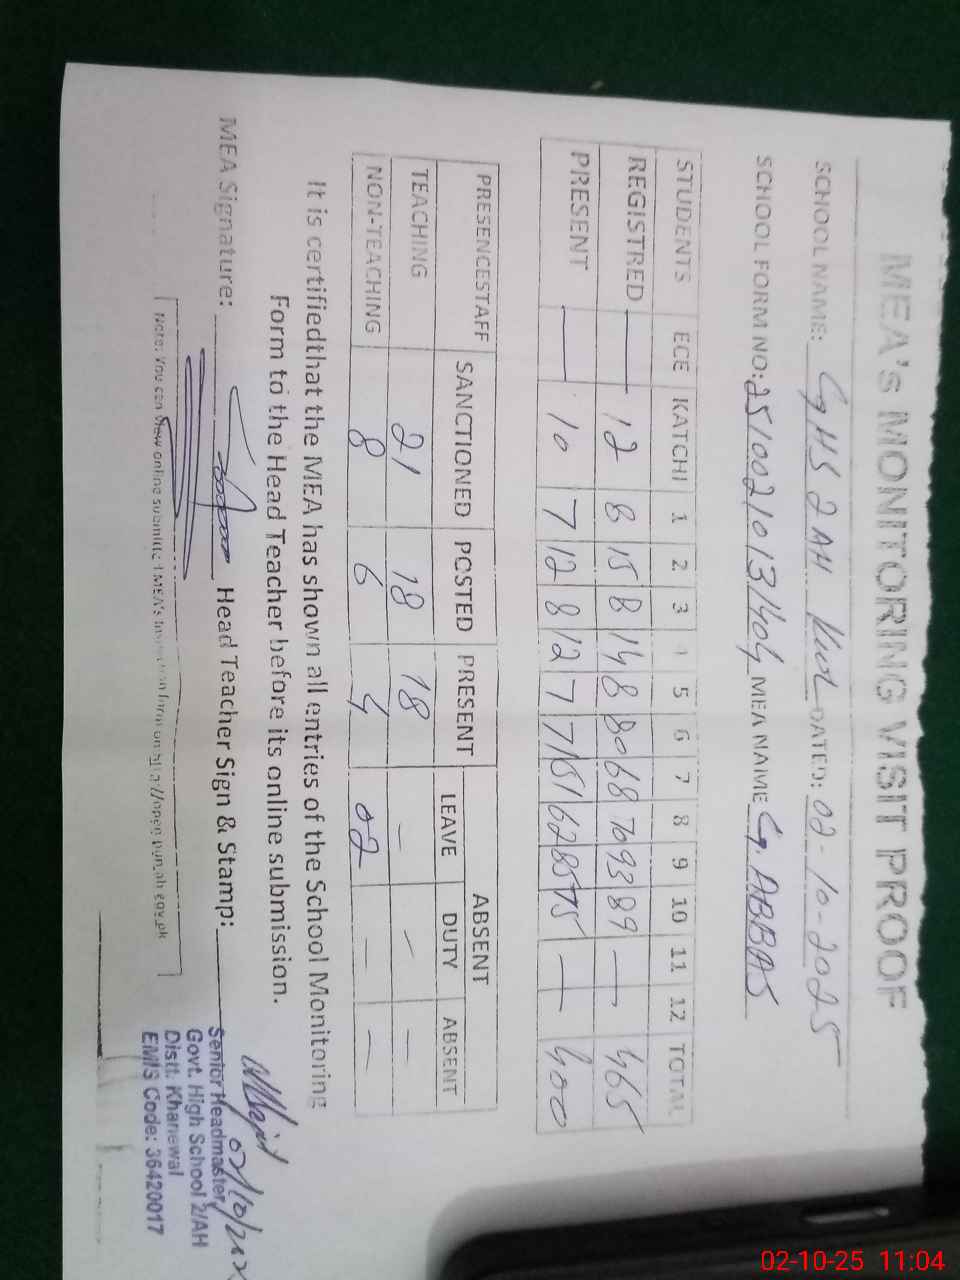 MEA's MONITORING VISIT PROOF
SCHOOL NAME: GHS 2AH DATED: 02-10-2025
SCHOOL FORM NO: 2510021013404 MEA NAME G. ABBAS
STUDENTS ECE KATCHI 1 2 3 4 5 6 7 8 9 10 11 12 TOTAL
REGISTRED — 12 8 15 8 14 8 80 68 70 93 89 — — 465
PRESENT — 10 7 12 8 12 7 71 51 62 85 75 — — 400
PRESENCESTAFF SANCTIONED POSTED PRESENT ABSENT
LEAVE DUTY ABSENT
TEACHING 21 18 18 — — —
NON-TEACHING 8 6 4 02 — —
It is certifiedthat the MEA has shown all entries of the School Monitoring
Form to the Head Teacher before its online submission.
MEA Signature: Head Teacher Sign & Stamp:
Senior Headmaster
Govt. High School 2/AH
Distt. Khanewal
EMIS Code: 36420017
Note: You can view online submitted MEA's Inspection form on http://open.punjab.gov.pk
02-10-25 11:04